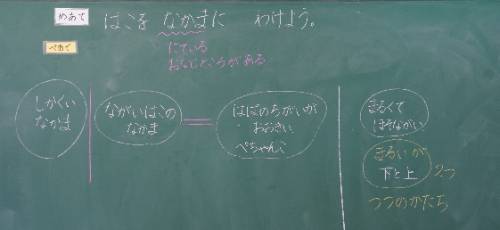 めあて
はこを なかまに わけよう。
ペアで
にている
おなじところがある
しかくい
なかま
ながいはこの
なかま
はばのちがいが
おおきい
ぺちゃんこ
まるくて
ほそながい
まるいが
下と上
2つ
つつのかたち